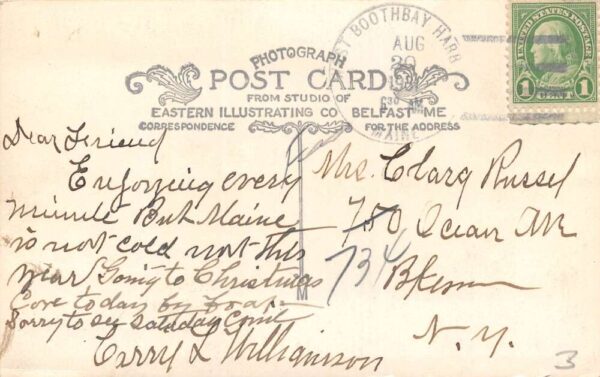 PHOTOGRAPH
POST CARD
FROM STUDIO OF
EASTERN ILLUSTRATING CO BELFAST ME
CORRESPONDENCE
FOR THE ADDRESS
BOOTHBAY HARB
AUG
MAINE
UNITED STATES POSTAGE
1 CENT 1
Dear Friend
Enjoying every
minute But Maine
is not cold not this
year Going to Christmas
Cove today by boat
Sorry to
Carry L Williamson
Mrs. Clara Russel
750 Ocean Ave
734
N. Y.
M
3